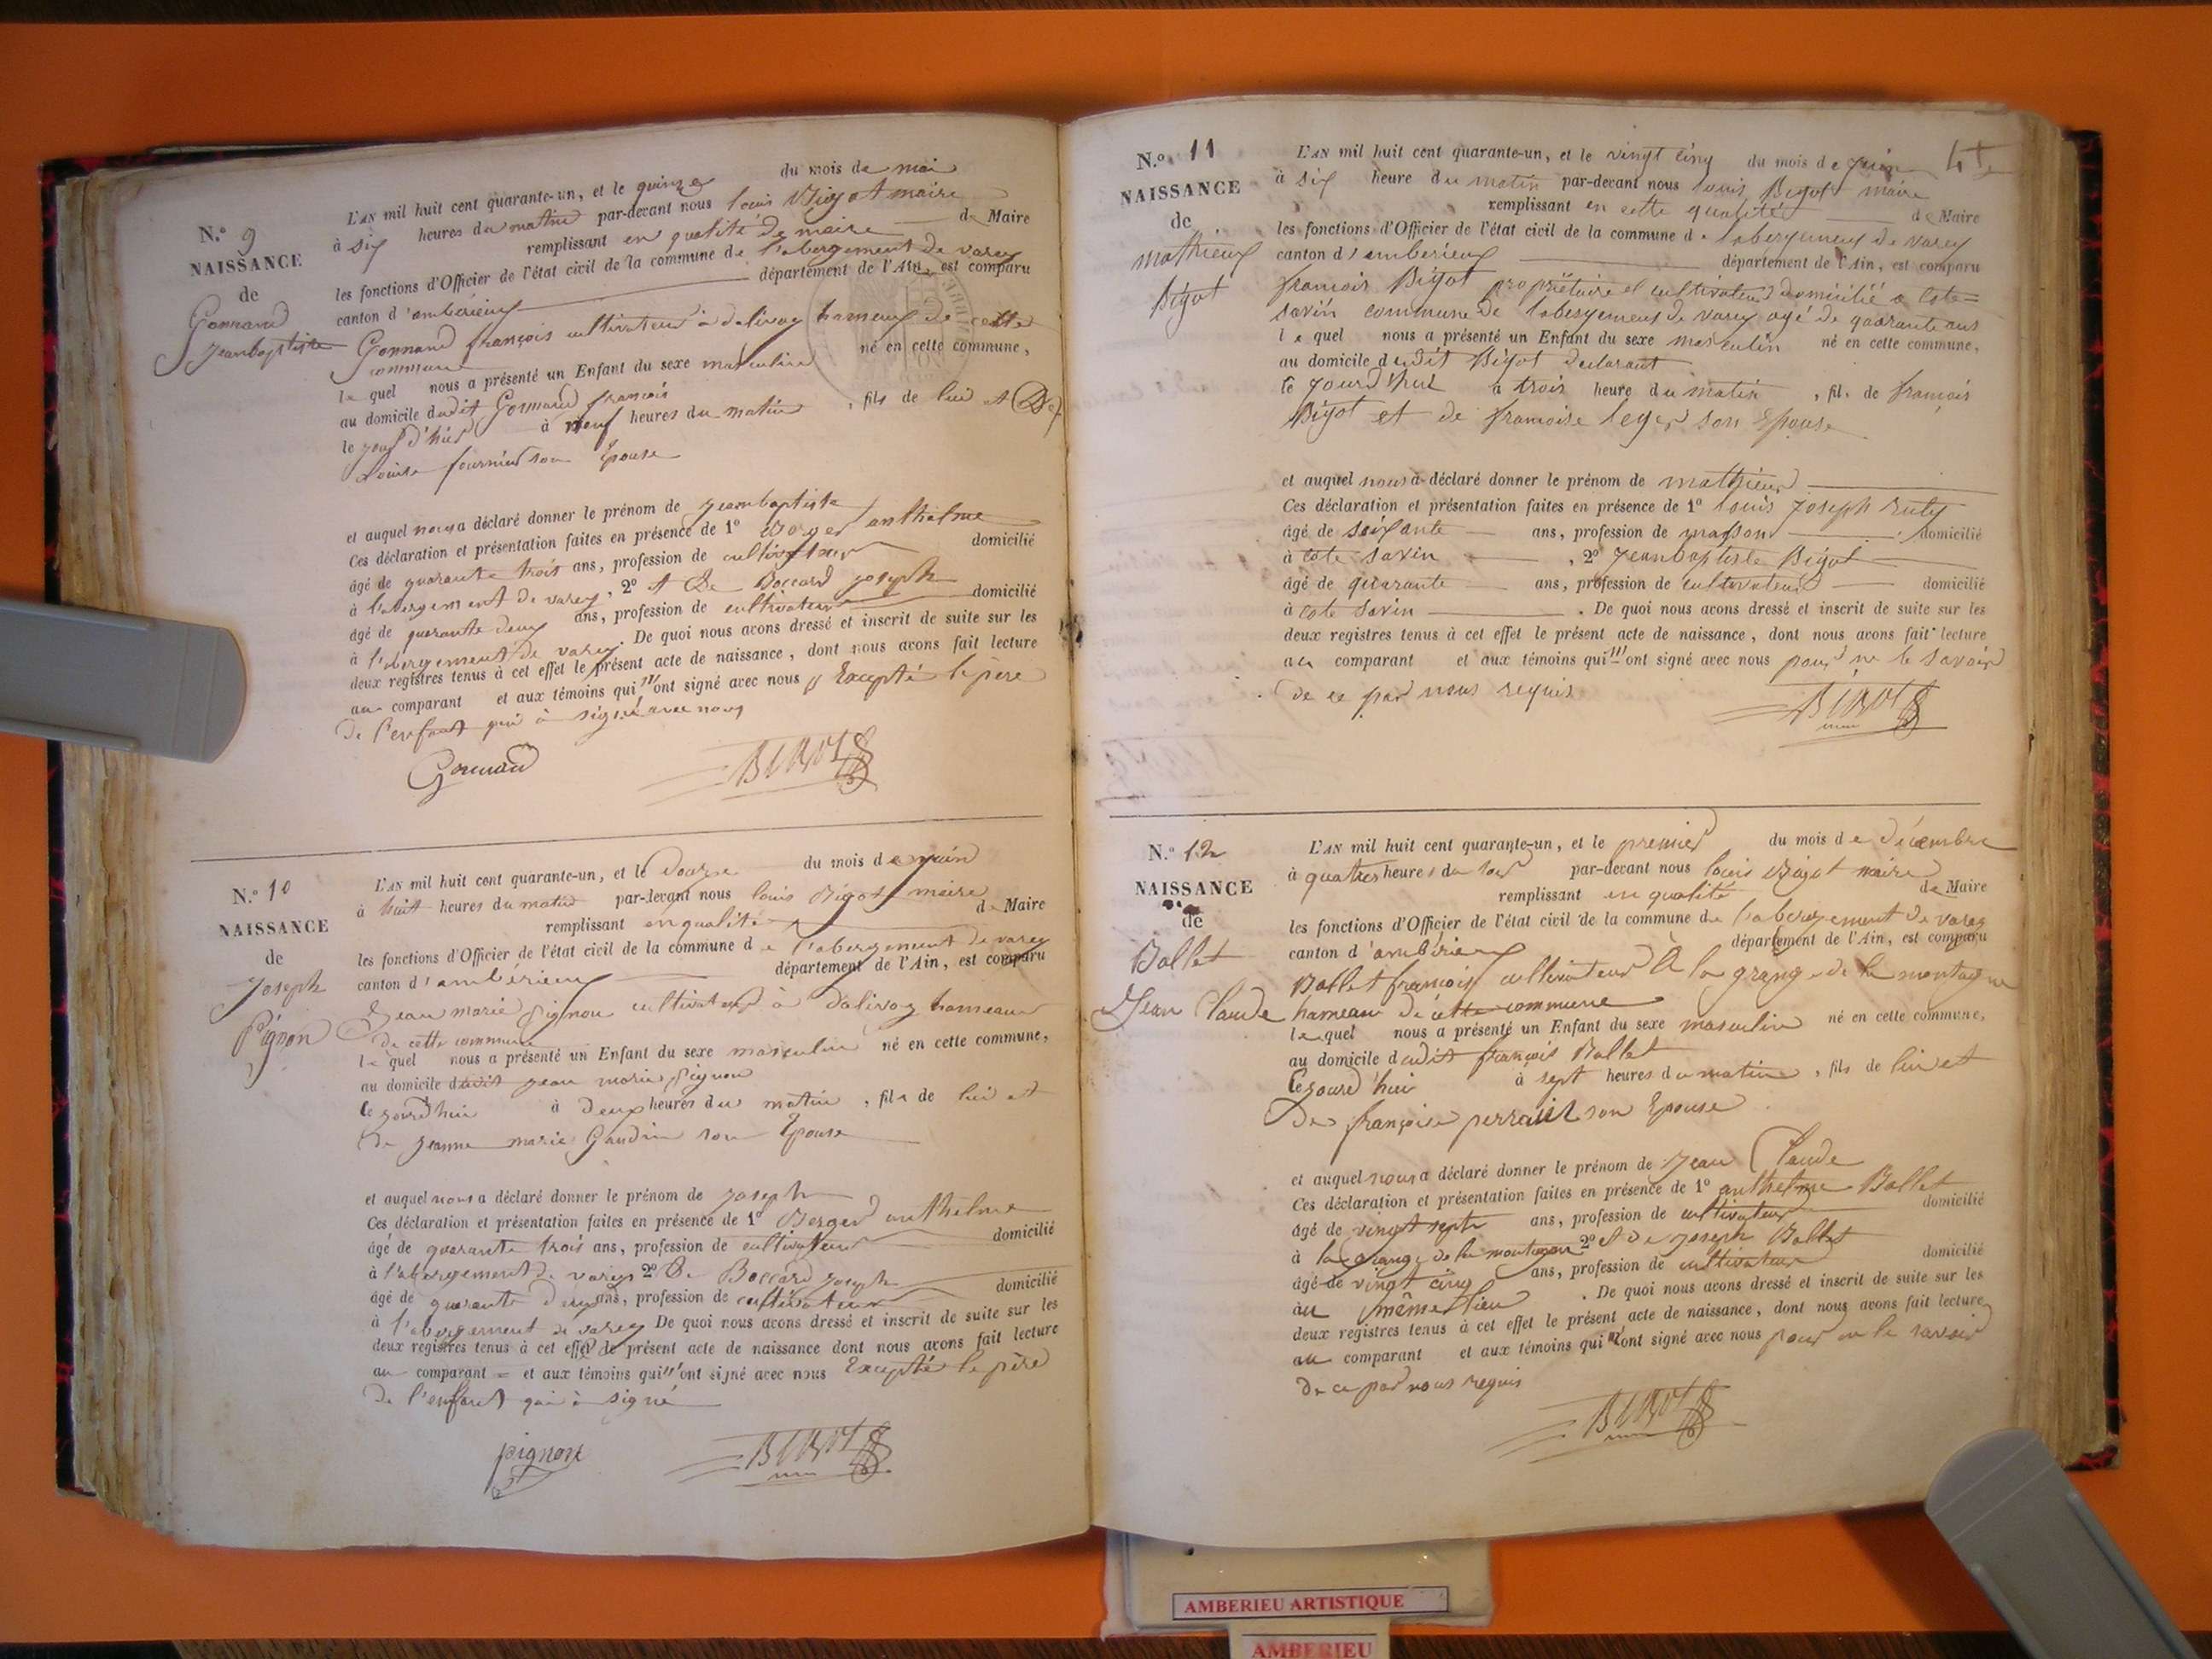 N.º 9
NAISSANCE
de
Gonnand
Jeanbaptiste
L'AN mil huit cent quarante-un, et le quinze du mois de mai
à six heures du matin par-devant nous louis Bigot maire
remplissant en qualité de maire de Maire
les fonctions d'Officier de l'état civil de la commune de l'abergement de varey
canton d'ambérieux département de l'Ain, est comparu
Gonnand françois cultivateur à dalivoy hameau de cette
commune
le quel nous a présenté un Enfant du sexe masculin né en cette commune,
au domicile dudit Gonnand françois
le jour d'hier à neuf heures du matin, fils de lui et De
Louise fournier son Epouse
et auquel nous a déclaré donner le prénom de Jeanbaptiste
Ces déclaration et présentation faites en présence de 1º Berger anthelme
âgé de quarante trois ans, profession de cultivateur domicilié
à l'abergement de varey, 2º et De Boccard joseph
âgé de quarante deux ans, profession de cultivateur domicilié
à l'abergement de varey. De quoi nous avons dressé et inscrit de suite sur les
deux registres tenus à cet effet le présent acte de naissance, dont nous avons fait lecture
au comparant et aux témoins qui n'ont signé avec nous Excepté le père
de l'enfant qui à signé avec nous
Gonnand BIGOT
N.º 10
NAISSANCE
de
Joseph
Pignon
L'AN mil huit cent quarante-un, et le Douze du mois de juin
à huit heures du matin par-devant nous louis Bigot maire
remplissant en qualité de Maire
les fonctions d'Officier de l'état civil de la commune de l'abergement de varey
canton d'ambérieux département de l'Ain, est comparu
Jean marie pignon cultivateur à dalivoy hameau
de cette commune
le quel nous a présenté un Enfant du sexe masculin né en cette commune,
au domicile dudit jean marie pignon
le jourd'hui à deux heures du matin, fils de lui et
de jeanne marie Gaudin son Epouse
et auquel nous a déclaré donner le prénom de joseph
Ces déclaration et présentation faites en présence de 1º Berger anthelme
âgé de quarante trois ans, profession de cultivateur domicilié
à l'abergement de varey 2º De Boccard joseph
âgé de quarante deux ans, profession de cultivateur domicilié
à l'abergement de varey De quoi nous avons dressé et inscrit de suite sur les
deux registres tenus à cet effet le présent acte de naissance dont nous avons fait lecture
au comparant = et aux témoins qui n'ont signé avec nous Excepté le père
de l'enfant qui à signé
pignon BIGOT
N.º 11
NAISSANCE
de
mathieux
Bigot
L'AN mil huit cent quarante-un, et le vingt cinq du mois de juin
à six heure du matin par-devant nous louis Bigot maire
remplissant en cette qualité de Maire
les fonctions d'Officier de l'état civil de la commune d. labergement de varey
canton d'amberieux département de l'Ain, est comparu
francois Bigot propriétaire et cultivateur domicilié a Cote=
savin commune de labergement de varey agé de quarante ans
le quel nous a présenté un Enfant du sexe masculin né en cette commune,
au domicile dudit Bigot declarant
le jourd'hui à trois heure du matin, fil. de francois
Bigot et de francoise leger son Epouse
et auquel nous a déclaré donner le prénom de mathieux
Ces déclaration et présentation faites en présence de 1º louis joseph ruty
âgé de soixante ans, profession de masson domicilié
à cote savin, 2º jeanbaptiste Bigot
âgé de quarante ans, profession de cultivateur domicilié
à cote savin. De quoi nous avons dressé et inscrit de suite sur les
deux registres tenus à cet effet le présent acte de naissance, dont nous avons fait lecture
au comparant et aux témoins qui n'ont signé avec nous pour ne le savoir
de ce par nous requis
BIGOT
N.º 12
NAISSANCE
de
Ballet
Jean Claude
L'AN mil huit cent quarante-un, et le premier du mois de décembre
à quatres heures du soir par-devant nous louis Bigot maire
remplissant en qualité de Maire
les fonctions d'Officier de l'état civil de la commune de l'abergement de varey
canton d'ambérieux département de l'Ain, est comparu
Ballet françois cultivateur à la grange de la montagne
hameau de cette commune
le quel nous a présenté un Enfant du sexe masculin né en cette commune,
au domicile dudit françois Ballet
le jourd'hui à sept heures du matin, fils de lui et
De françoise perraut son Epouse
et auquel nous a déclaré donner le prénom de Jean Claude
Ces déclaration et présentation faites en présence de 1º anthelme Ballet
âgé de vingt sept ans, profession de cultivateur domicilié
à la Grange de la montagne 2º et De joseph Ballet
âgé de vingt cinq ans, profession de cultivateur domicilié
au même lieu. De quoi nous avons dressé et inscrit de suite sur les
deux registres tenus à cet effet le présent acte de naissance, dont nous avons fait lecture
au comparant et aux témoins qui n'ont signé avec nous pour ne le savoir
de ce par nous requis
BIGOT
AMBERIEU ARTISTIQUE
AMBERIEU